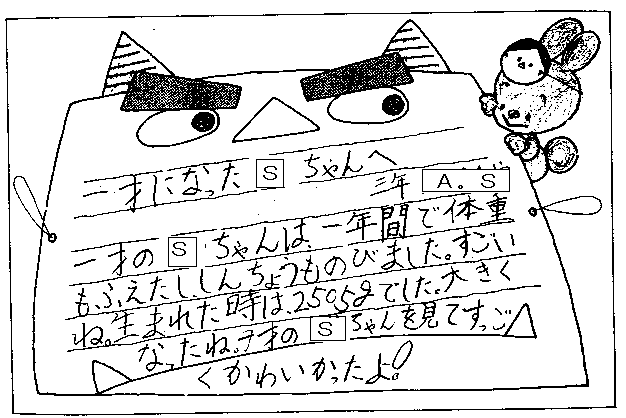 一才になった S ちゃんへ
三年 A。S
一才の S ちゃんは、一年間で体重
もふえたし、しんちょうものびました。すごい
ね。生まれた時は、2505gでした。大きく
なったね。才の S ちゃんを見てすっご
くかわいかったよ!